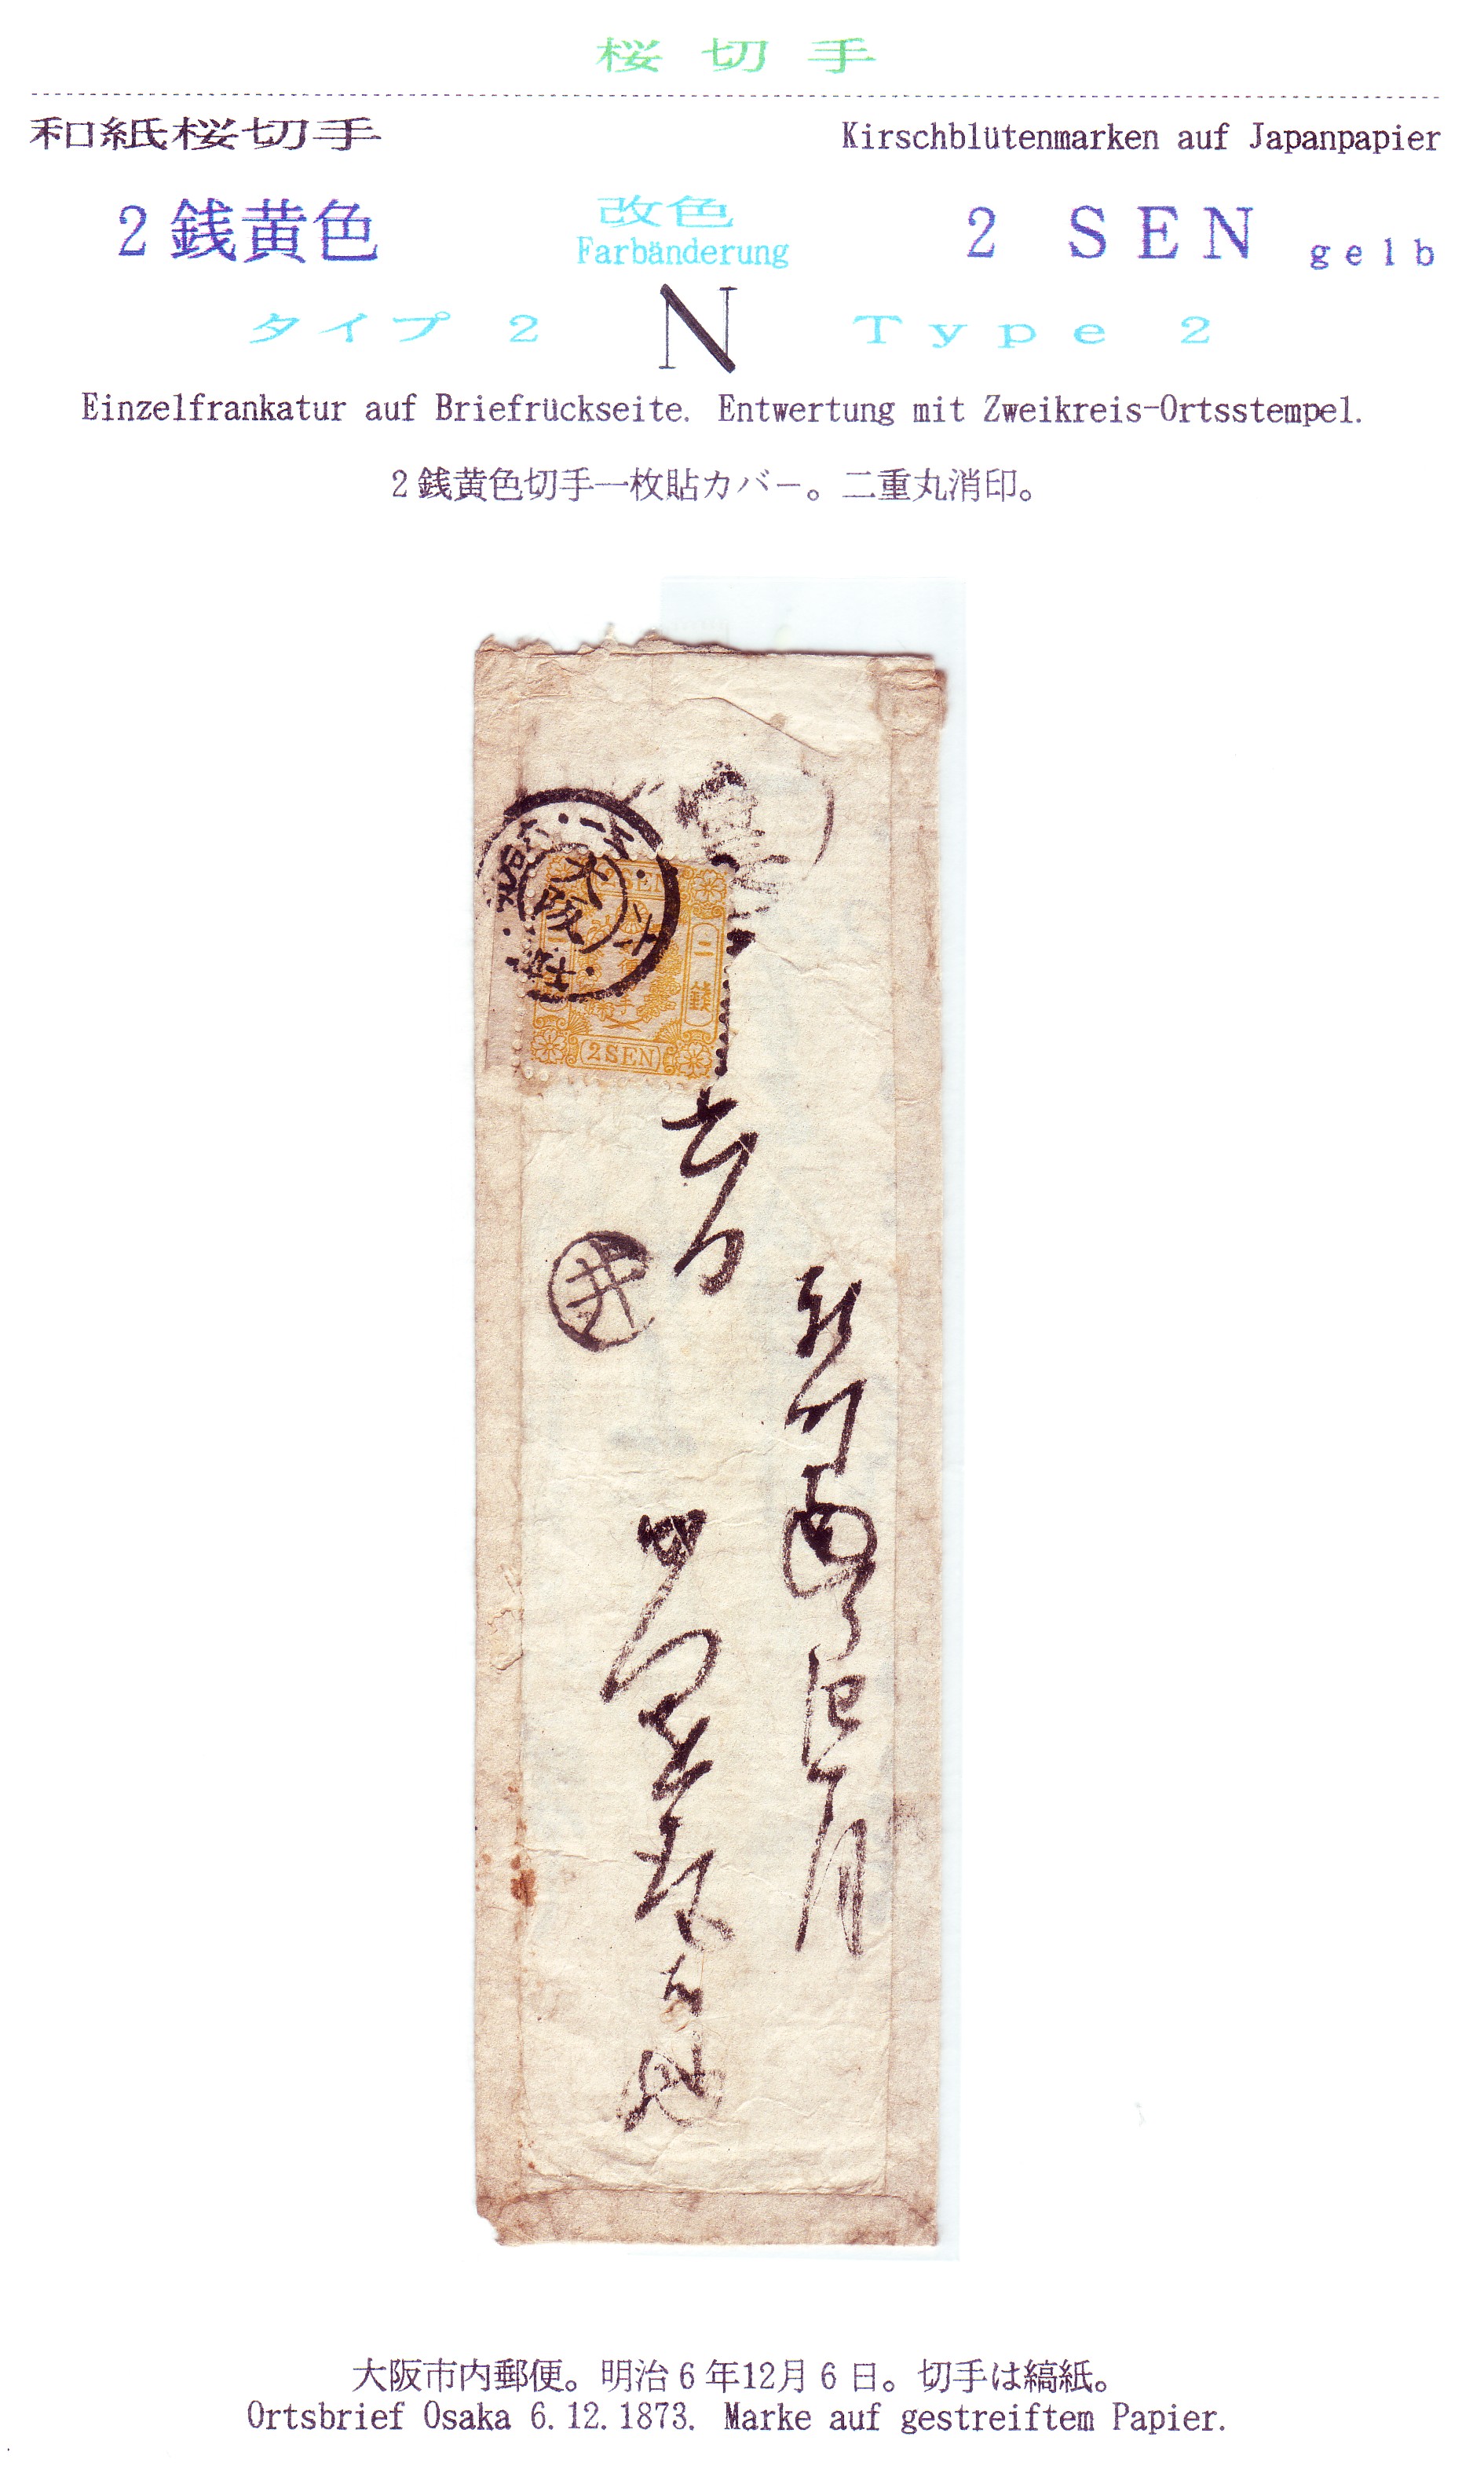 桜切手
和紙桜切手
Kirschblütenmarken auf Japanpapier
2銭黄色
改色
Farbänderung
2 SEN gelb
タイプ 2
N
Type 2
Einzelfrankatur auf Briefrückseite. Entwertung mit Zweikreis-Ortsstempel.
2銭黄色切手一枚貼カバー。二重丸消印。
大阪
二錢
2SEN
井
大阪市内郵便。明治6年12月6日。切手は縞紙。
Ortsbrief Osaka 6.12.1873. Marke auf gestreiftem Papier.